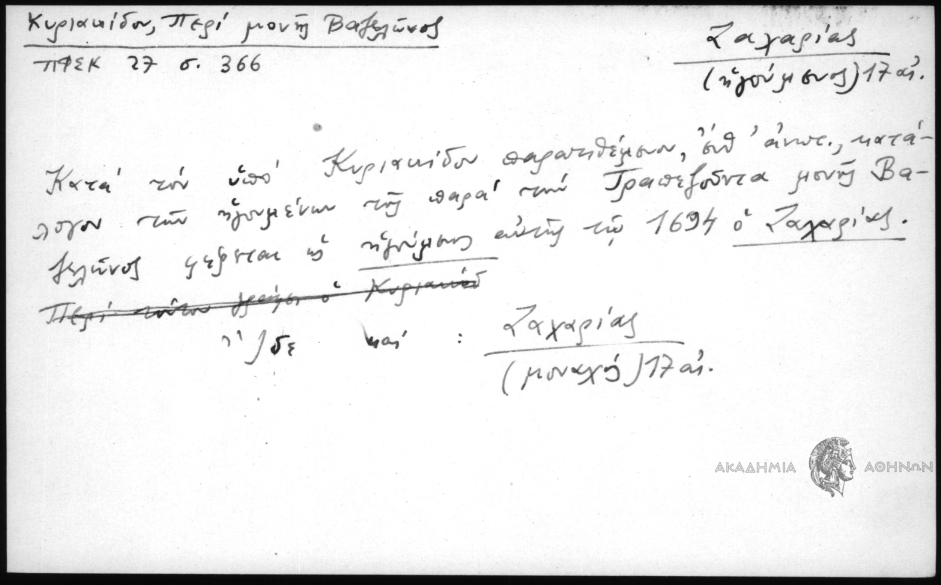 Κυριακίδου, Περὶ μονῆς Βαζελῶνος
ΠΦΕΚ 27 σ. 366
Ζαχαρίας
(ἡγούμενος) 17 αἰ.
Κατὰ τὸν ὑπὸ Κυριακίδου παρατιθέμενον, ἔνθ' ἀνωτ., κατά-
λογον τῶν ἡγουμένων τῆς παρὰ τὴν Τραπεζοῦντα μονῆς Βα-
ζελῶνος φέρεται ὡς ἡγούμενος αὐτῆς τῷ 1694 ὁ Ζαχαρίας.
Περὶ τούτου γράφει ὁ Κυριακίδ
Ἴδε καὶ : Ζαχαρίας
(μοναχός) 17 αἰ.
ΑΚΑΔΗΜΙΑ ΑΘΗΝΩΝ